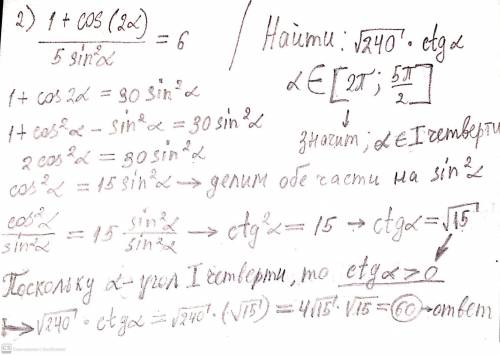 2) (1 + cos(2α)) / (5 sin²α) = 6
Найти: √240 · ctgα
α ∈ [2π; 5π/2]
↓
значит; α ∈ I четверти
1 + cos2α = 30 sin²α
1 + cos²α − sin²α = 30 sin²α
2cos²α = 30 sin²α
cos²α = 15 sin²α → делим обе части на sin²α
cos²α/sin²α = 15 sin²α/sin²α → ctg²α = 15 → ctgα = √15
Поскольку α – угол I четверти, то ctgα > 0
→ √240 · ctgα = √240 · (√15) = 4√15 · √15 = 60 → ответ